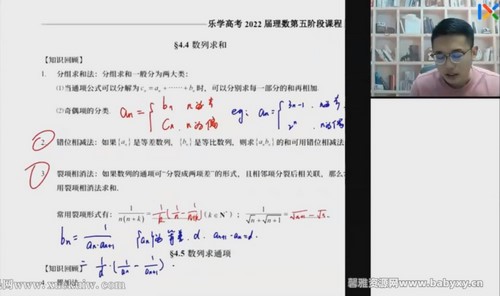 乐学高考 2022 届理数第五阶段课程
§4.4 数列求和
【知识回顾】
1. 分组求和法：分组求和一般分为两大类：
(1)当通项公式可以分解为 cₙ = aₙ + ⋯⋯ + bₙ 时，可以分别求每一部分的和再相加.
(2)奇偶项的分类. aₙ = { bₙ n为奇 eg: aₙ = { 3n-1 . n为奇
Cₙ n为偶 2ⁿ n为偶
2. 错位相减法：如果{aₙ}是等差数列，{bₙ}是等比数列，则求{aₙbₙ}的和可用错位相减法
3. 裂项相消法：如果数列的通项可“分裂成两项差”的形式，且相邻项分裂后相关联，那么
用裂项相消法求和.
常用裂项形式有： 1/n(n+k) = 1/k (1/n - 1/(n+k)) (k∈N*)； 1/(√n+√(n+1)) = √(n+1) - √n.
bₙ = 1/(aₙ·aₙ₊₁) {aₙ}为等差. d. aₙ₊₁ - aₙ = d.
= 1/d · (1/aₙ - 1/aₙ₊₁).
§4.5 数列求通项
【知识回顾】
馨雅资源网 www.babyxy.cn